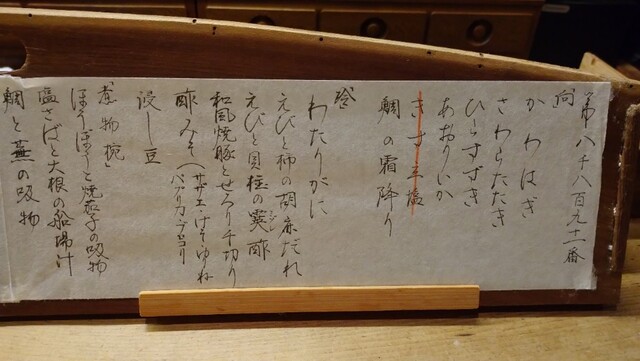 第八千八百九十一番
向
かわはぎ
さわらたたき
ひらすずき
あおりいか
きす
鯛の霜降り
わたりがに
えびと柿の胡麻だれ
えびと貝柱の黄酢
和風焼豚とせろり千切り
酢みそ(サザエ・けそゆね
パプリカ・ブロッコリ
浸し豆
煮物椀
ほうぼうと焼茄子の吸物
塩さばと大根の船場汁
鯛と蕪の吸物